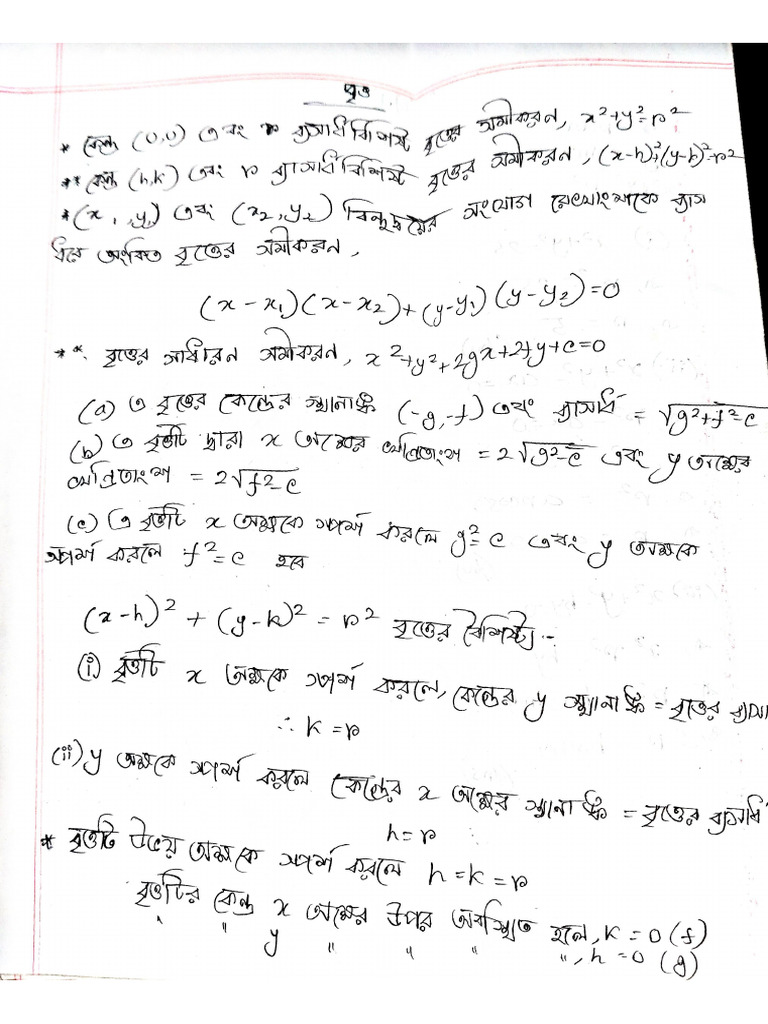 বৃত্ত
* কেন্দ্র (0,0) এবং r ব্যাসার্ধ বিশিষ্ট বৃত্তের সমীকরন, x²+y²=r²
** কেন্দ্র (h,k) এবং r ব্যাসার্ধ বিশিষ্ট বৃত্তের সমীকরন, (x-h)²+(y-k)²=r²
* (x₁, y₁) এবং (x₂, y₂) বিন্দুদ্বয়ের সংযোগ রেখাংশকে ব্যাস
ধরে অংকিত বৃত্তের সমীকরন,
(x-x₁)(x-x₂)+(y-y₁)(y-y₂)=0
** বৃত্তের সাধারন সমীকরন, x²+y²+2gx+2fy+c=0
(a) ঐ বৃত্তের কেন্দ্রের স্থানাঙ্ক (-g,-f) এবং ব্যাসার্ধ = √g²+f²-c
(b) ঐ বৃত্তটি দ্বারা x অক্ষের খন্ডিতাংশ = 2√g²-c এবং y অক্ষের
খন্ডিতাংশ = 2√f²-c
(c) ঐ বৃত্তটি x অক্ষকে স্পর্শ করলে g²=c এবং y অক্ষকে
স্পর্শ করলে f²=c হবে
(x-h)² + (y-k)² = r² বৃত্তের বৈশিষ্ট্য :-
(i) বৃত্তটি x অক্ষকে স্পর্শ করলে, কেন্দ্রের y স্থানাঙ্ক = বৃত্তের ব্যাসা
∴ k=r
(ii) y অক্ষকে স্পর্শ করলে কেন্দ্রের x অক্ষের স্থানাঙ্ক = বৃত্তের ব্যাসার্ধ
h=r
* বৃত্তটি উভয় অক্ষকে স্পর্শ করলে h=k=r
বৃত্তটির কেন্দ্র x অক্ষের উপর অবস্থিত হলে, k=0 (f)
" " y " " " ", h=0 (g)